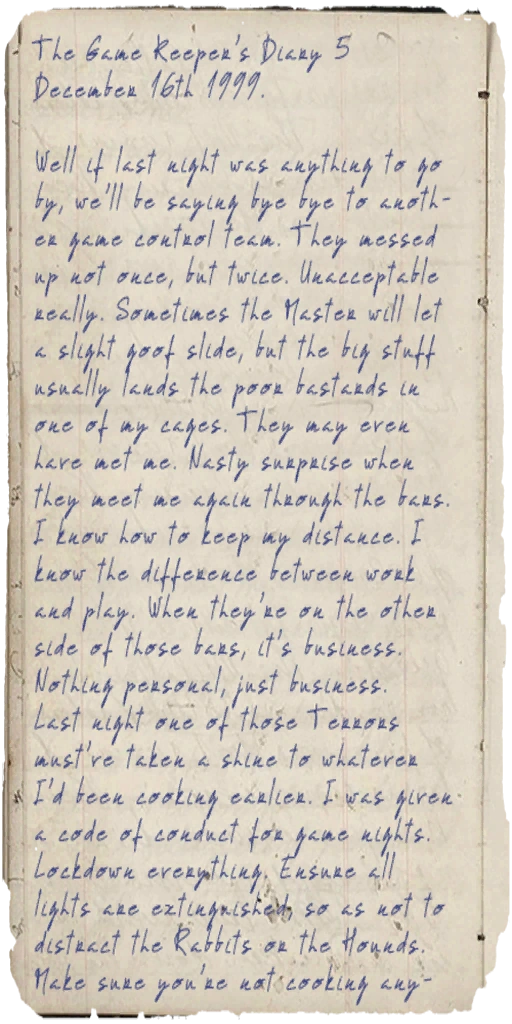 The Game Keeper's Diary 5
December 16th 1999.
Well if last night was anything to go
by, we'll be saying bye bye to anoth-
er game control team. They messed
up not once, but twice. Unacceptable
really. Sometimes the Master will let
a slight goof slide, but the big stuff
usually lands the poor bastards in
one of my cages. They may even
have met me. Nasty surprise when
they meet me again through the bars.
I know how to keep my distance. I
know the difference between work
and play. When they're on the other
side of those bars, it's business.
Nothing personal, just business.
Last night one of those Terrors
must've taken a shine to whatever
I'd been cooking earlier. I was given
a code of conduct for game nights.
Lockdown everything. Ensure all
lights are extinguished, so as not to
distract the Rabbits or the Hounds.
Make sure you're not cooking any-